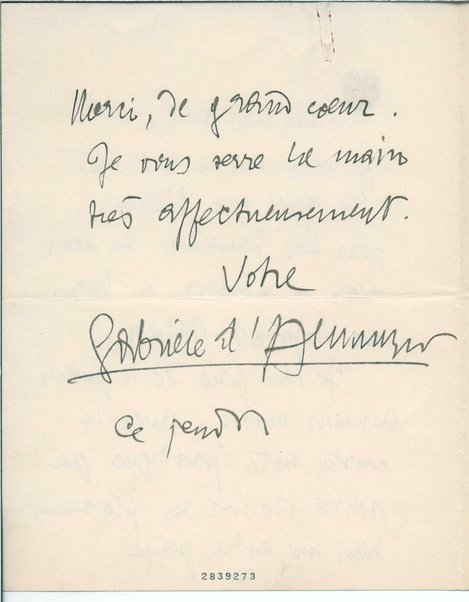 Merci, de grand coeur.
Je vous serre la main
très affectueusement.
Votre
Gabriele d'Annunzio
Ce jeudi
2839273